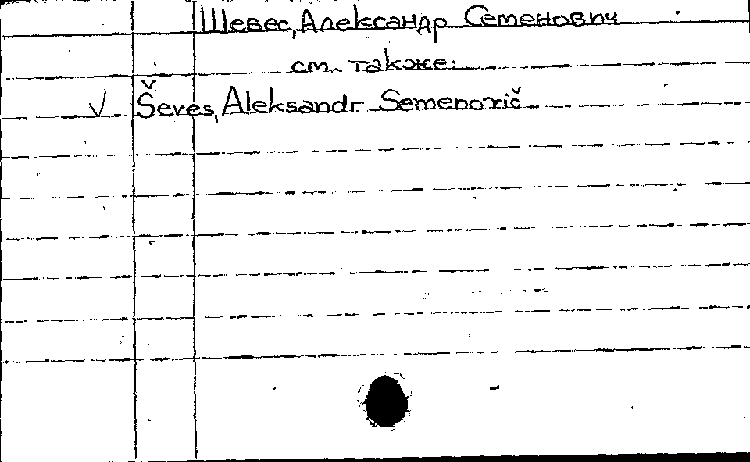 Шевес, Александр Семенович
см. также:
√ Ševes, Aleksandr Semenovič